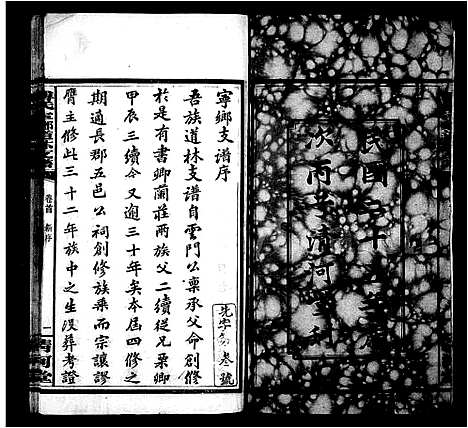 民國三十
次丙子清河堂刊
寧鄉支譜序
吾族道林支譜自雲門公稟承父命創修
於是有書卿蘭莊兩族父二續從兄栗卿
甲辰三續今又逾三十年矣本屆四修之
期適長郡五邑公祠創修族乘而宗讓謬
膺主修此三十二年族中之生沒葬考證
卷首
新序
一
清河堂